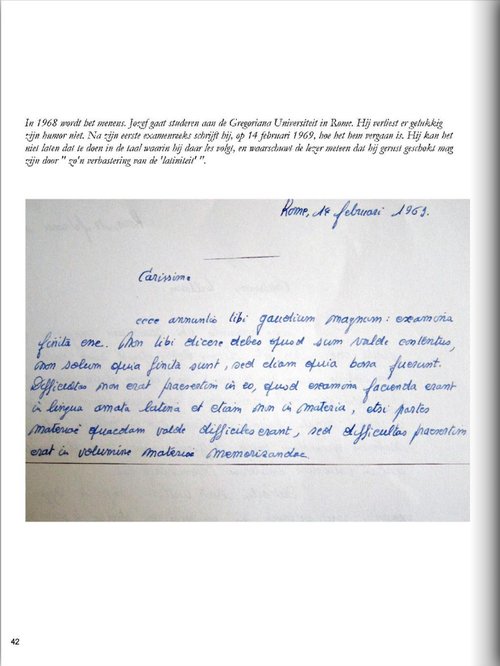 In 1968 wordt het menens. Jozef gaat studeren aan de Gregoriana Universiteit in Rome. Hij verliest er gelukkig
zijn humor niet. Na zijn eerste examenreeks schrijft hij, op 14 februari 1969, hoe het hem vergaan is. Hij kan het
niet laten dat te doen in de taal waarin hij daar les volgt, en waarschuwt de lezer meteen dat hij gerust geschokt mag
zijn door " zo'n verbastering van de 'latiniteit' ".
Rome, 14 februari 1969.
Carissime
ecce annuntio tibi gaudium magnum: examina
finita sunt. Non tibi dicere debeo quod sum valde contentus,
non solum quia finita sunt, sed etiam quia bona fuerunt.
Difficultas non erat praesertim in eo, quod examina facienda erant
in lingua amata latina et etiam non in materia, etsi partes
materiae quaedam valde difficiles erant, sed difficultas praesertim
erat in volumine materiae memorisandae.
42